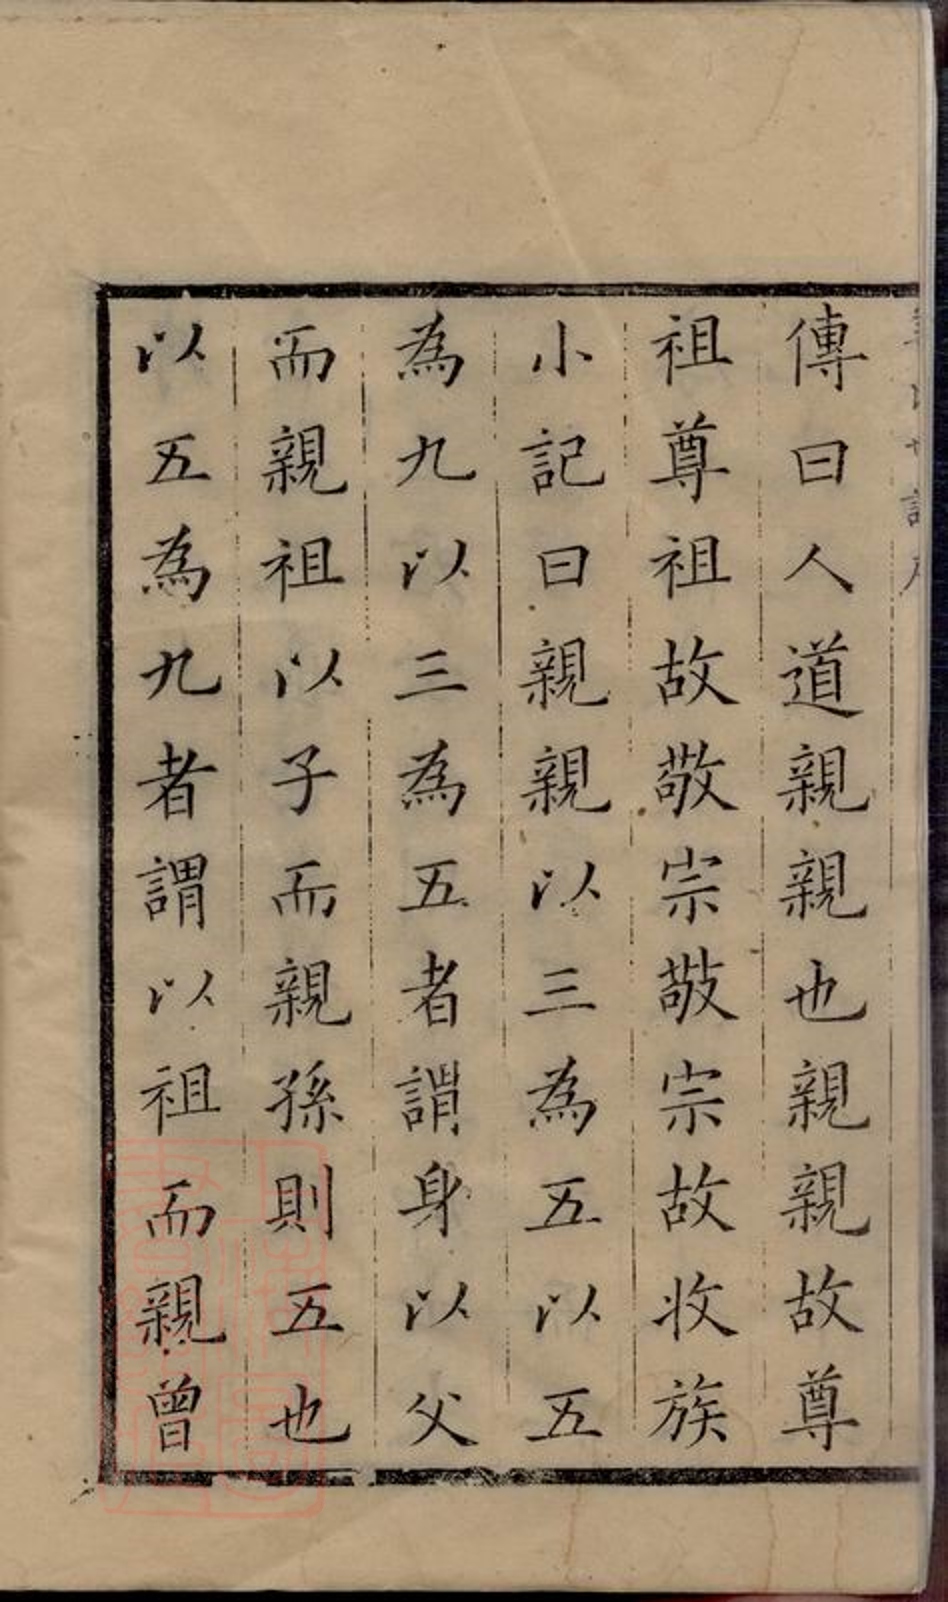 傳曰人道親親也親親故尊
祖尊祖故敬宗敬宗故收族
小記曰親親以三為五以五
為九以三為五者謂身以父
而親祖以子而親孫則五也
以五為九者謂以祖而親曾